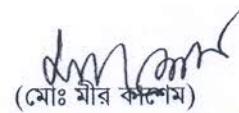 (মোঃ মীর কাশেম)